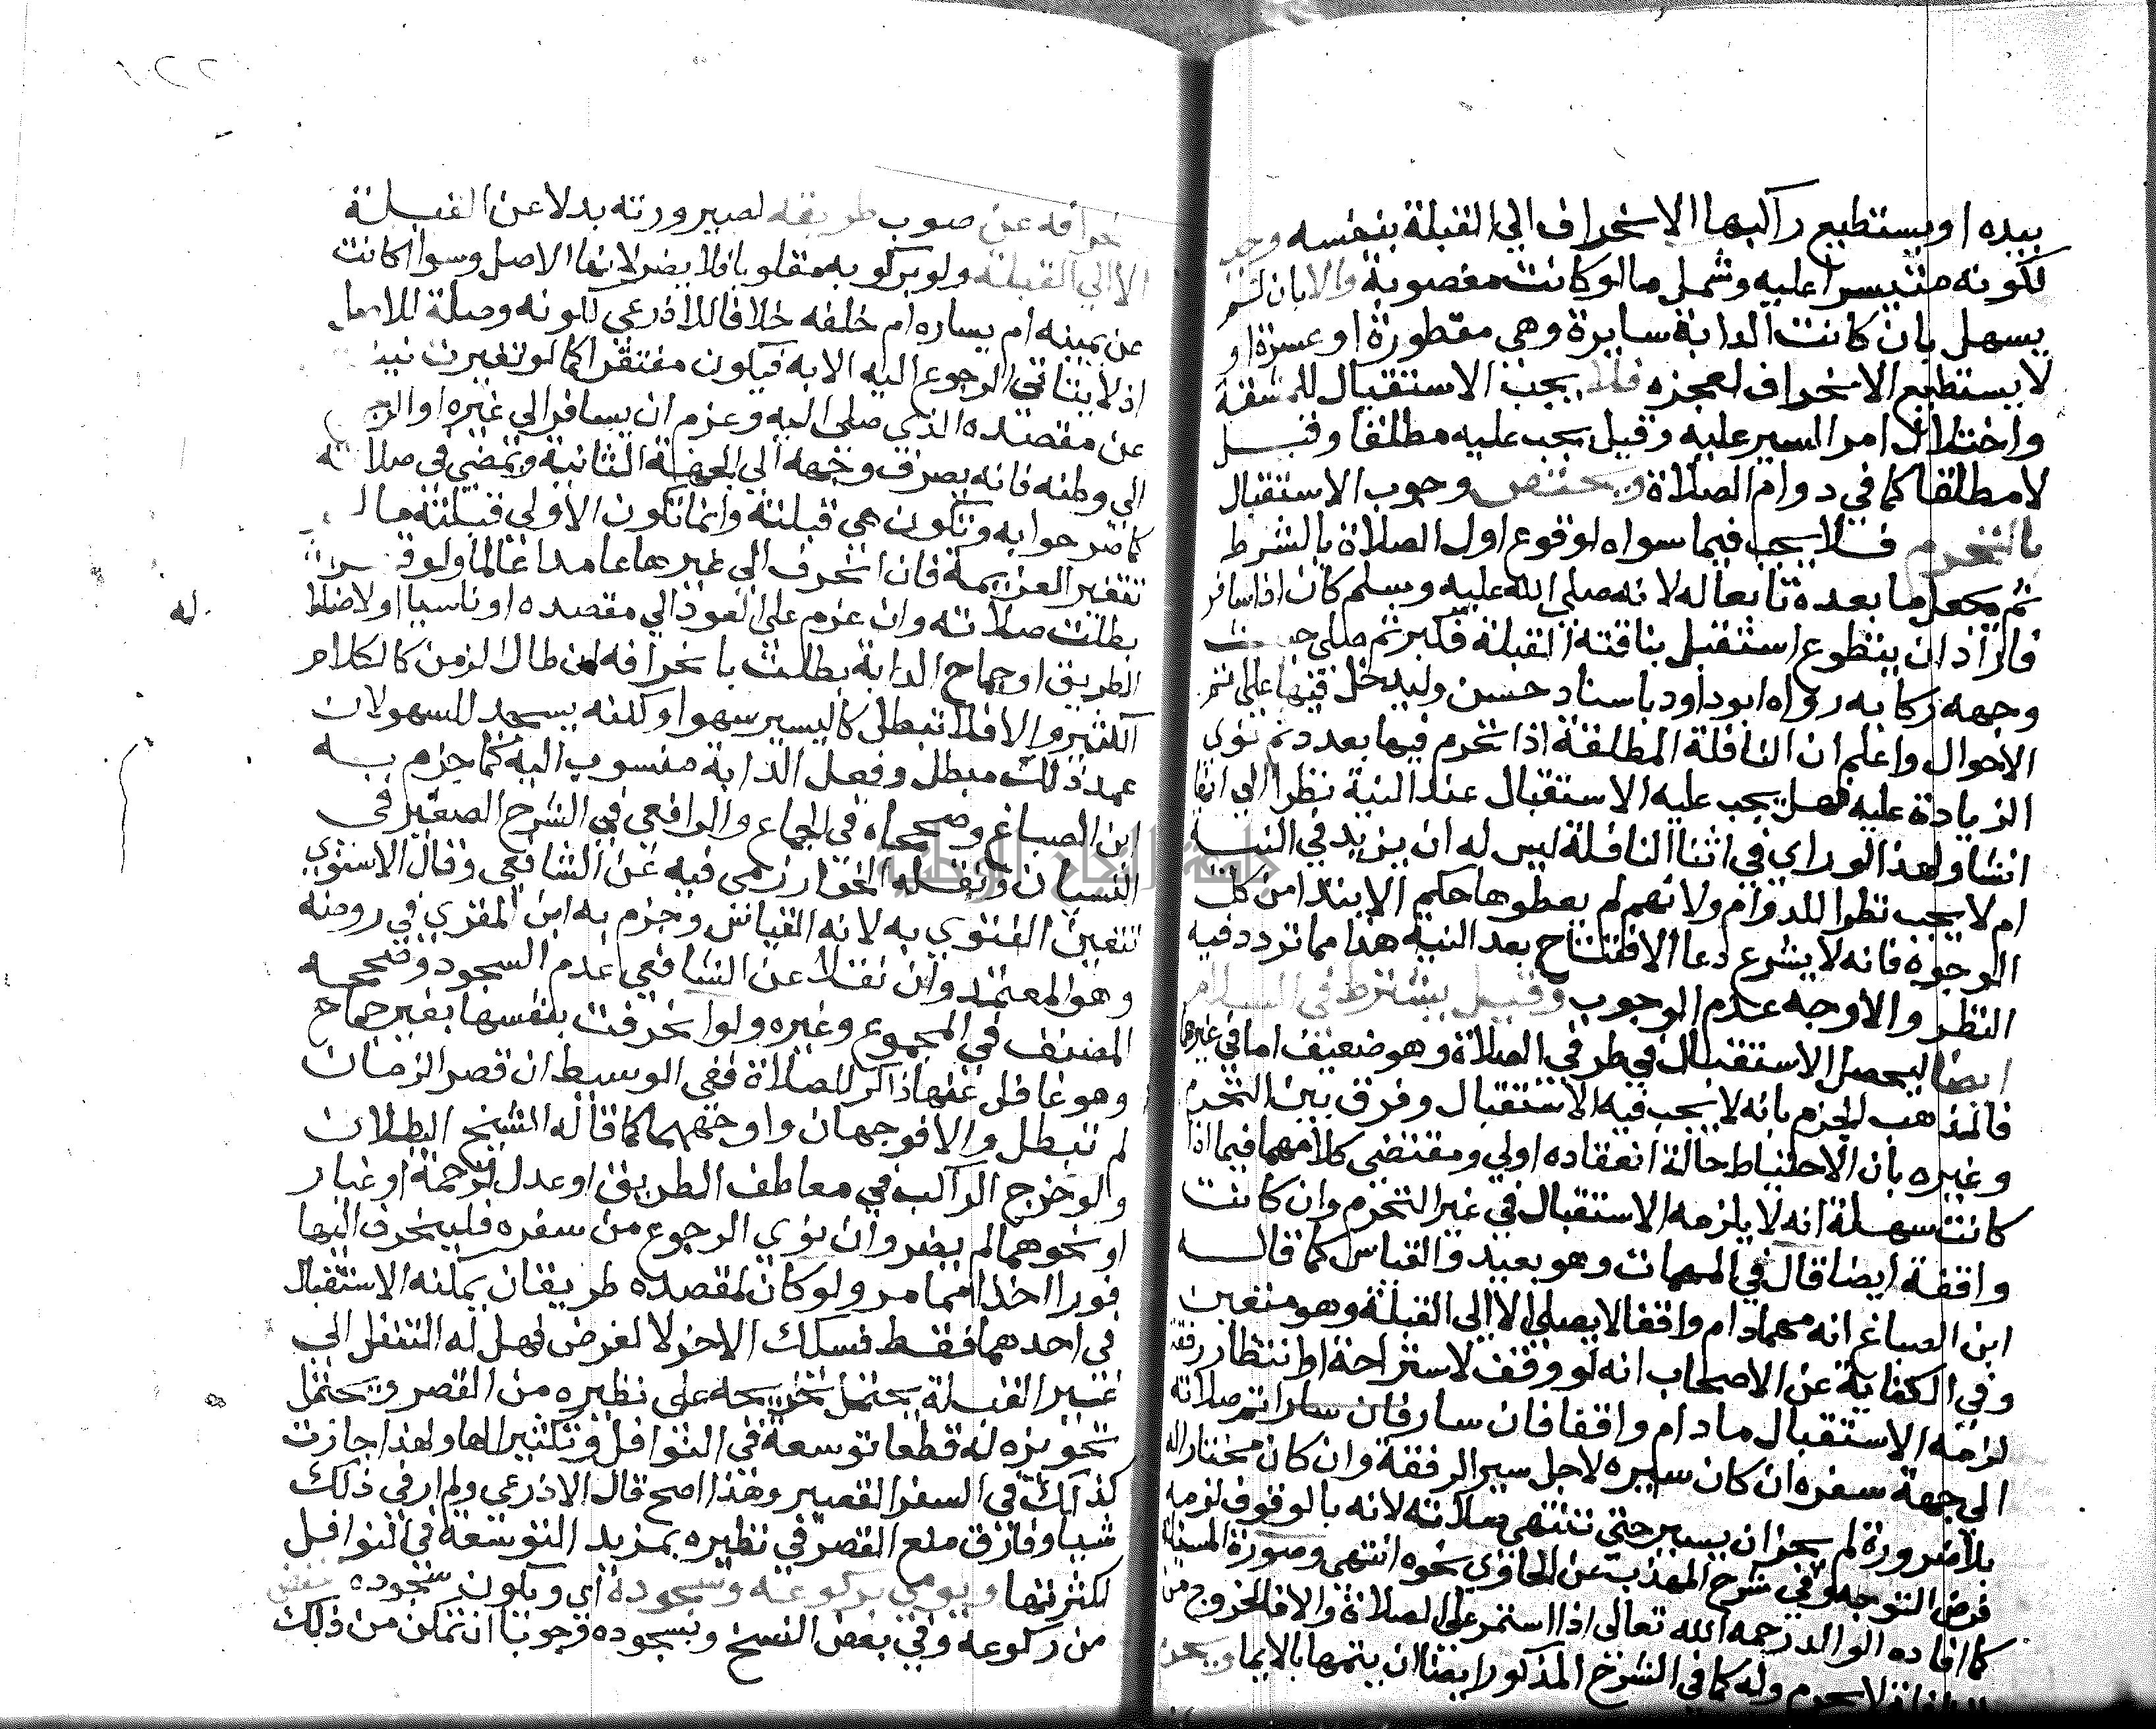 بيده او يستطيع راكبها الانحراف الي القبلة بنفسه وجب
لكونه متيسرا عليه وشمل ما لو كانت مغصوبة والا بان لم
يسهل بان كانت الدابة سايرة وهي مقطورة او عسرة او
لا يستطيع الانحراف لعجزه فلا يجب الاستقبال للمشقة
واختلال امر السير عليه وقيل يجب عليه مطلقا وقيل
لا مطلقا كما في دوام الصلاة ويختص وجوب الاستقبال
بالتحرم فلا يجب فيما سواه لوقوع اول الصلاة بالشرط
ثم يجعل ما بعده تابعا له لانه صلي الله عليه وسلم كان اذا سافر
فاراد ان يتطوع استقبل بناقته القبلة فكبر ثم صلي حيث
وجهه ركابه رواه ابو داود باسناد حسن وليدخل فيها علي اتم
الاحوال واعلم ان النافلة المطلقة اذا تحرم فيها بعدد ثم نوي
الزيادة عليه فهل يجب عليه الاستقبال عند النية نظرا الي انها
انشا ولهذا لو راي في اثنا النافلة ليس له ان يزيد في النية
ام لا يجب نظرا للدوام ولانهم لم يعطوها حكم الابتدا من كل
الوجوه فانه لا يشرع دعا الافتتاح بعد النية هذا مما تردد فيه
النظر والاوجه عدم الوجوب وقيل يشترط في السلام
ايضا ليحصل الاستقبال في طرفي الصلاة وهو ضعيف اما في غيرهما
فالمذهب الجزم بانه لا يجب فيه الاستقبال وفرق بين التحرم
وغيره بان الاحتياط حالة انعقاده اولي ومقتضي كلامهما فيما اذا
كانت سهلة انه لا يلزمه الاستقبال في غير التحرم وان كانت
واقفة ايضا قال في المهمات وهو بعيد والقياس كما قاله
ابن الصباغ انه مهما دام واقفا لا يصلي الا الي القبلة وهو متعين
وفي الكفاية عن الاصحاب انه لو وقف لاستراحة او انتظار رفقة
لزمه الاستقبال ما دام واقفا فان سار اتم صلاته
الي جهة سفره ان كان سيره لاجل سير الرفقة وان كان مختارا له
بلا ضرورة لم يجز ان يسير حتي تنتهي صلاته لانه بالوقوف لزمه
فرض التوجه وفي شرح المهذب عن الحاوي نحوه انتهي وصورة المسئلة
كما افاده الوالد رحمه الله تعالى اذا استمر علي الصلاة والا فالخروج من
النافلة لا يحرم وله كما في الشرح المذكور ايضا ان يتمها بالايما ويحرم
انحرافه عن صوب طريقه لصيرورته بدلا عن القبلة
الا الي القبلة ولو بركوبه مقلوبا فلا يضر لانها الاصل وسوا كانت
عن يمينه ام يساره ام خلفه خلافا للاذرعي لكونه وصلة للاصل
اذ لا يتاتي الرجوع اليه الا به فيكون مغتفرا كما لو تغيرت نيته
عن مقصده الذي صلى اليه وعزم ان يسافر الي غيره او الرجوع
الي وطنه فانه يصرف وجهه الي الجهة الثانية ويمضي في صلاته
كما صرحوا به وتكون هي قبلته وانما تكون الاولي قبلته ما لم
تتغير العزيمة فان انحرف الي غيرها عامدا عالما ولو قهرا
بطلت صلاته وان عزم علي العود الي مقصده او ناسيا او لاضلال
الطريق او جماح الدابة بطلت بانحرافه ان طال الزمن كالكلام
الكثير والا فلا تبطل كاليسير سهوا ولكنه يسجد للسهو لان
عمد ذلك مبطل وفعل الدابة منسوب اليه كما جزم به
ابن الصباغ وصححاه في الجماع والرافعي في الشرح الصغير في
النسيان ونقله الخوارزمي فيه عن الشافعي وقال الاسنوي
تتعين الفتوي به لانه القياس وجزم به ابن المقري في روضه
وهو المعتمد وان نقلا عن الشافعي عدم السجود وصححه
المصنف في المجموع وغيره ولو انحرفت بنفسها بغير جماح
وهو غافل عنها ذاكر للصلاة ففي الوسيط ان قصر الزمان
لم تبطل والا فوجهان واوجههما كما قاله الشيخ البطلان
ولو خرج الراكب في معاطف الطريق او عدل لزحمة او غبار
او نحوهما لم يضر وان نوي الرجوع من سفره فلينحرف اليها
فورا اخذا مما مر ولو كان لمقصده طريقان يمكنه الاستقبال
في احدهما فقط فسلك الاخر لا لغرض فهل له التنفل الي
غير القبلة يحتمل تخريجه على نظيره من القصر ويحتمل
تجويزه له قطعا توسعة في النوافل وتكثيرا لها ولهذا جازت
كذلك في السفر القصير وهذا اصح قال الاذرعي ولم ار في ذلك
شيا وفارق منع القصر في نظيره بمزيد التوسعة في النوافل
لكثرتها ويومي بركوعه وسجوده اي ويكون سجوده اخفض
من ركوعه وفي بعض النسخ وبسجوده وجوبا ان تمكن من ذلك
جامعة النجاح الوطنية